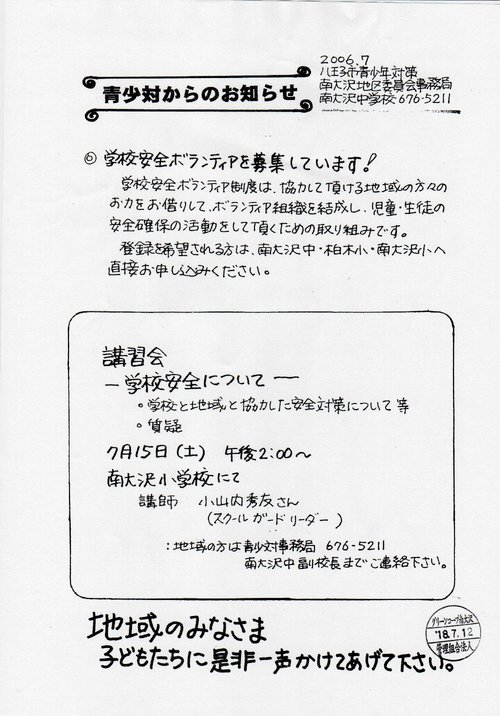 2006.7
八王子市青少年対策
南大沢地区委員会事務局
南大沢中学校 676-5211
青少対からのお知らせ
◎ 学校安全ボランティアを募集しています!
学校安全ボランティア制度は、協力して頂ける地域の方々の
お力をお借りして、ボランティア組織を結成し、児童・生徒の
安全確保の活動をして頂くための取り組みです。
登録を希望される方は、南大沢中・柏木小・南大沢小へ
直接お申し込みください。
講習会
ー学校安全についてー
。学校と地域と協力した安全対策について 等
。質疑
7月15日(土) 午後2:00〜
南大沢小学校にて
講師 小山内秀友さん
(スクール ガード リーダー)
:地域の方は青少対事務局 676-5211
南大沢中 副校長まで ご連絡下さい。
地域のみなさま
子どもたちに是非一声かけてあげて下さい。
'18.7.12
管理組合法人